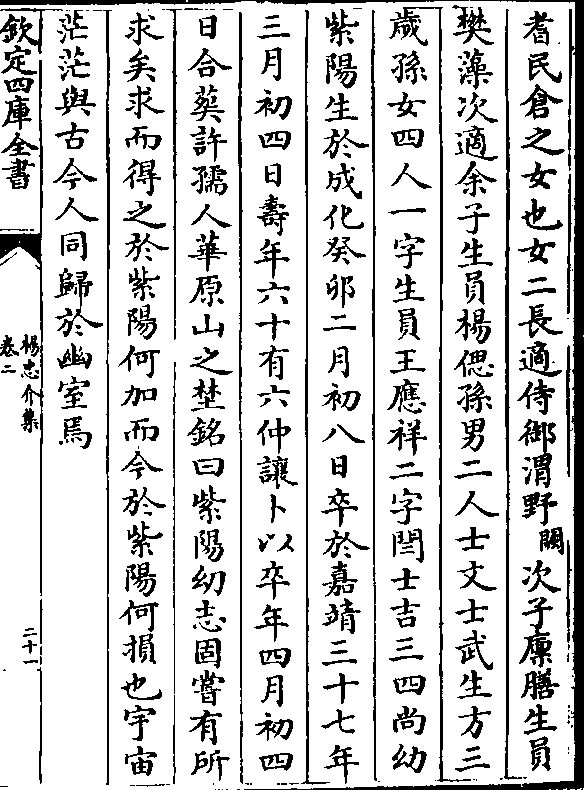 耆民倉之女也女二長適侍御渭野闕次子廩膳生員
樊藻次適余子生員楊偲孫男二人士文士武生方三
歲孫女四人一字生員王應祥二字閆士吉三四尚幼
紫陽生於成化癸卯二月初八日卒於嘉靖三十七年
三月初四日壽年六十有六仲讓卜以卒年四月初四
日合葬許孺人華原山之塋銘曰紫陽幼志固嘗有所
求矣求而得之於紫陽何加而今於紫陽何損也宇宙
茫茫與古今人同歸於幽室焉
欽定四庫全書
楊忠介集
卷二
二十一